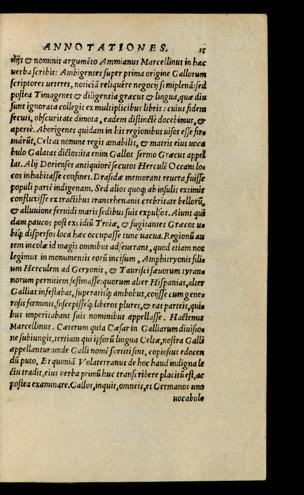 ANNOTATIONES. 15
& nominis argumēto Ammianus Marcellinus in hac
uerba scribit: Ambigentes super prima origine Gallorum
scriptores ueteres, notitiā reliquêre negocij simiplenā: sed
postea Timagenes & diligentia græcus & lingua, quæ diu
sunt ignorata collegit ex multiplicibus libris: cuius fidem
secuti, obscuritate dimota, eadem distinctè docebimus, &
apertè. Aborigenes quidam in his regionibus uisos esse fir
mârūt, Celtas nomine regis amabilis, & matris eius uoca
bulo Galatas dictos: ita enim Gallos sermo Græcus appel
lat. Alij Dorienses antiquiorē secutos Herculē Oceani lo
cos inhabitasse confines. Drasidæ memorant reuera fuisse
populi partē indigenam. Sed alios quoq; ab insulis extimis
confluxisse ex tractibus transrhenanis crebritate bellorū,
& alluuione feruidi maris sedibus suis expulsos. Aiunt quī
dam paucos post excidiū Troiæ, & fugitantes Græcos u
biq; dispersos loca hæc occupasse tunc uacua. Regionū au
tem incolæ id magis omnibus adseuerant, quod etiam nos
legimus in monumentis eorū incisum, Amphitryonis filiu
um Herculem ad Geryonis, & Taurisci sæuorum tyrann
norum perniciem festinasse: quorum alter Hispanias, alter
Gallias infestabat, superatisq; ambobus, coisse cum gene
rosis fœminis, suscepisseq; liberos plures, & eas parteis, qui
bus imperitabant suis nominibus appellasse. Hactenus
Marcellinus. Cæterum quia Cæsar in Galliarum diuisio
ne subiungit, tertiam qui ipsorū lingua Celtæ, nostra Galli
appellantur: unde Galli nomē sortiti sint, copiosius edocen
dū puto. Et quoniā Volaterranus de hoc haud indigna le
ctu tradit, eius uerba primū huc transcribere placitū est, ac
postea examinare. Gallos, inquit, omneis, et Germanos uno
uocabulo